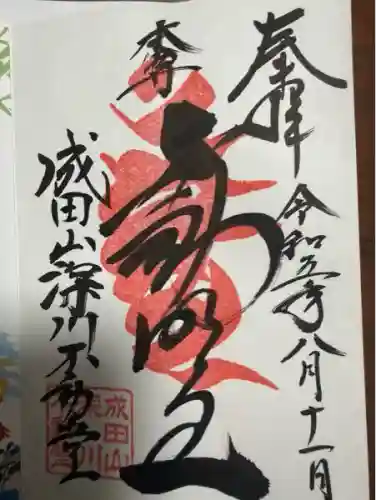 奉拝
令和五年八月十一日
本尊
不動明王
成田山深川不動堂
成田山
深川
不動堂